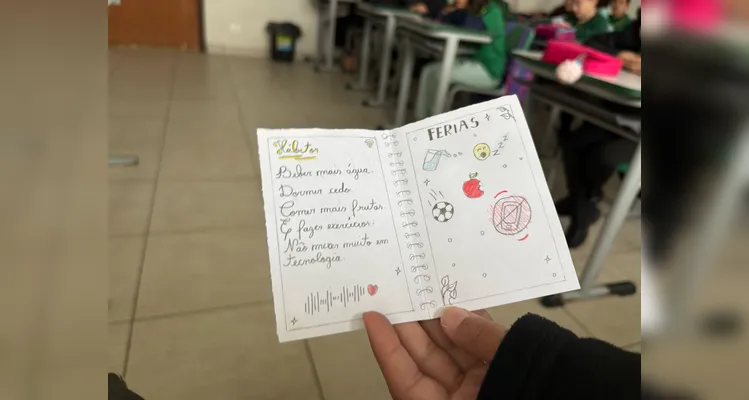 Hábitos
Beber mais água.
Dormir cedo.
Comer mais frutas.
E fazer exercícios.
Não mexer muito em
tecnologia
FERIAS
z z z